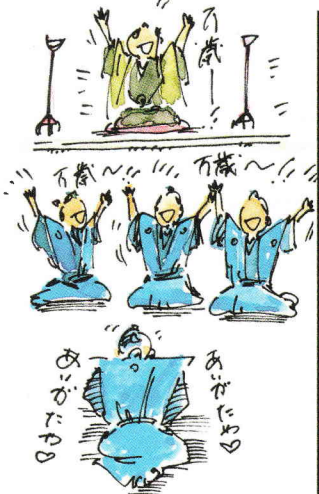 万歳ー
万歳〜
万歳〜
ありがたや♡
ありがたや♡